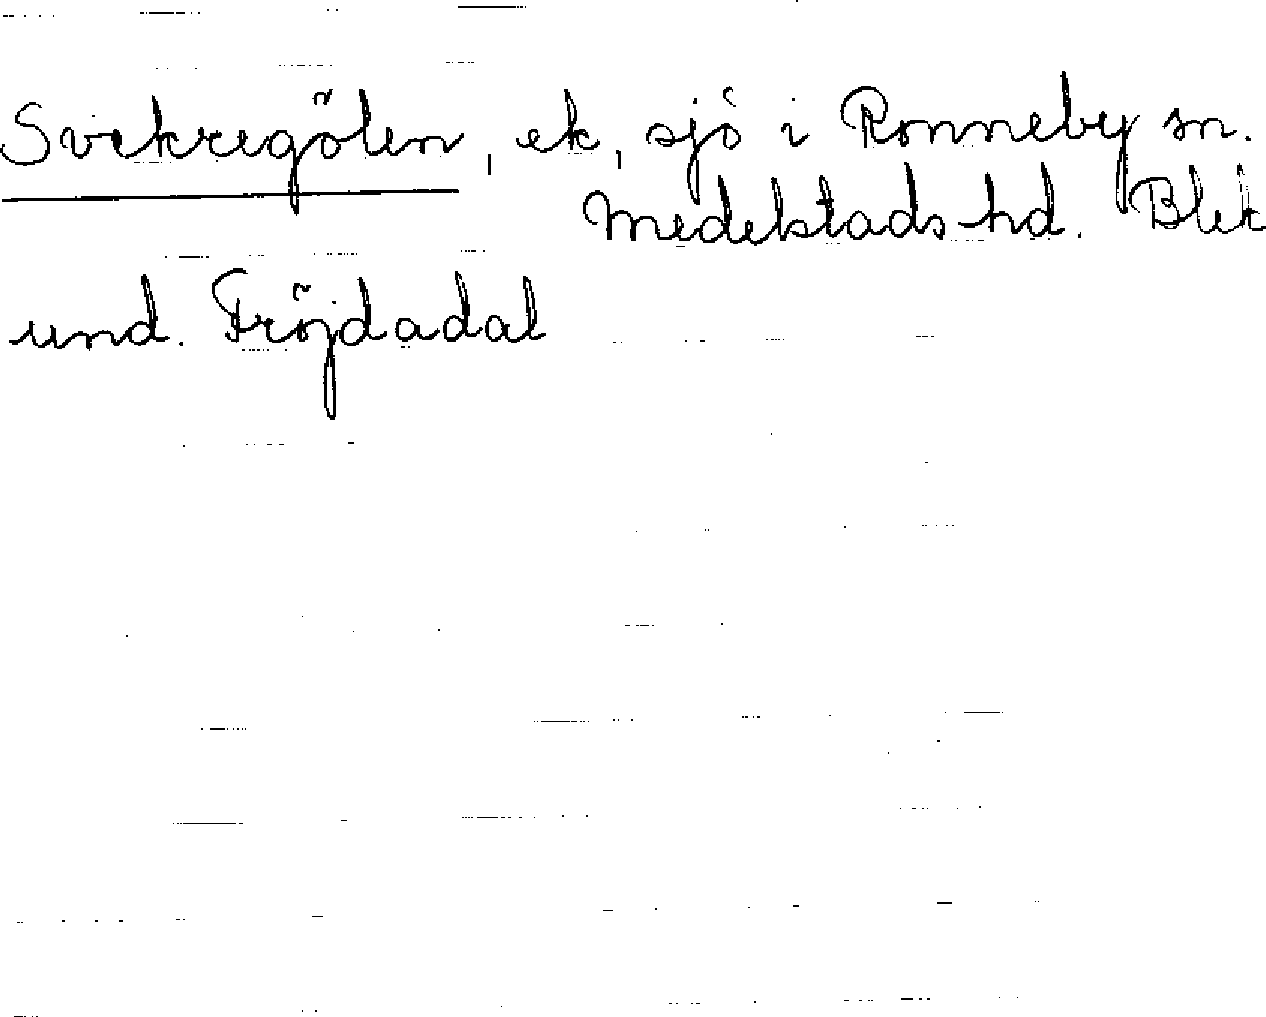 Svekregölen, ek, sjö i Ronneby sn.
Medelstads hd. Blek
und. Fröjdadal